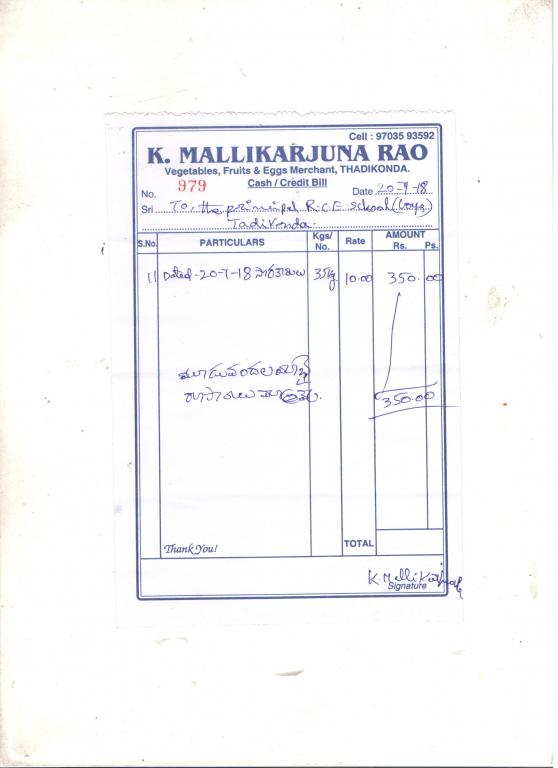 Cell : 97035 93592
K. MALLIKARJUNA RAO
Vegetables, Fruits & Eggs Merchant, THADIKONDA.
Cash / Credit Bill
No. 979 Date 20-7-18
Sri To, the principal R.C.E School (Boys)
Tadikonda.
S.No. PARTICULARS Kgs/ No. Rate AMOUNT Rs. Ps.
Dated-20-7-18 35kg 10.00 350.00
మూడువందలయాభై
రూపాయలు మాత్రమే.
350.00
Thank You! TOTAL
K. Mallikarjuna
Signature